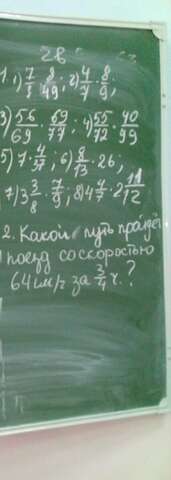 1. 1) 7/5 · 8/49; 2) 4/7 · 8/9;
3) 56/69 · 69/77; 4) 55/72 · 40/99
5) 7 · 4/37; 6) 8/13 · 26;
7) 3 3/8 · 7/9; 8) 4 4/7 · 2 11/12
2. Какой путь пройдёт
поезд со скоростью
64 км/ч за 3/4 ч.?